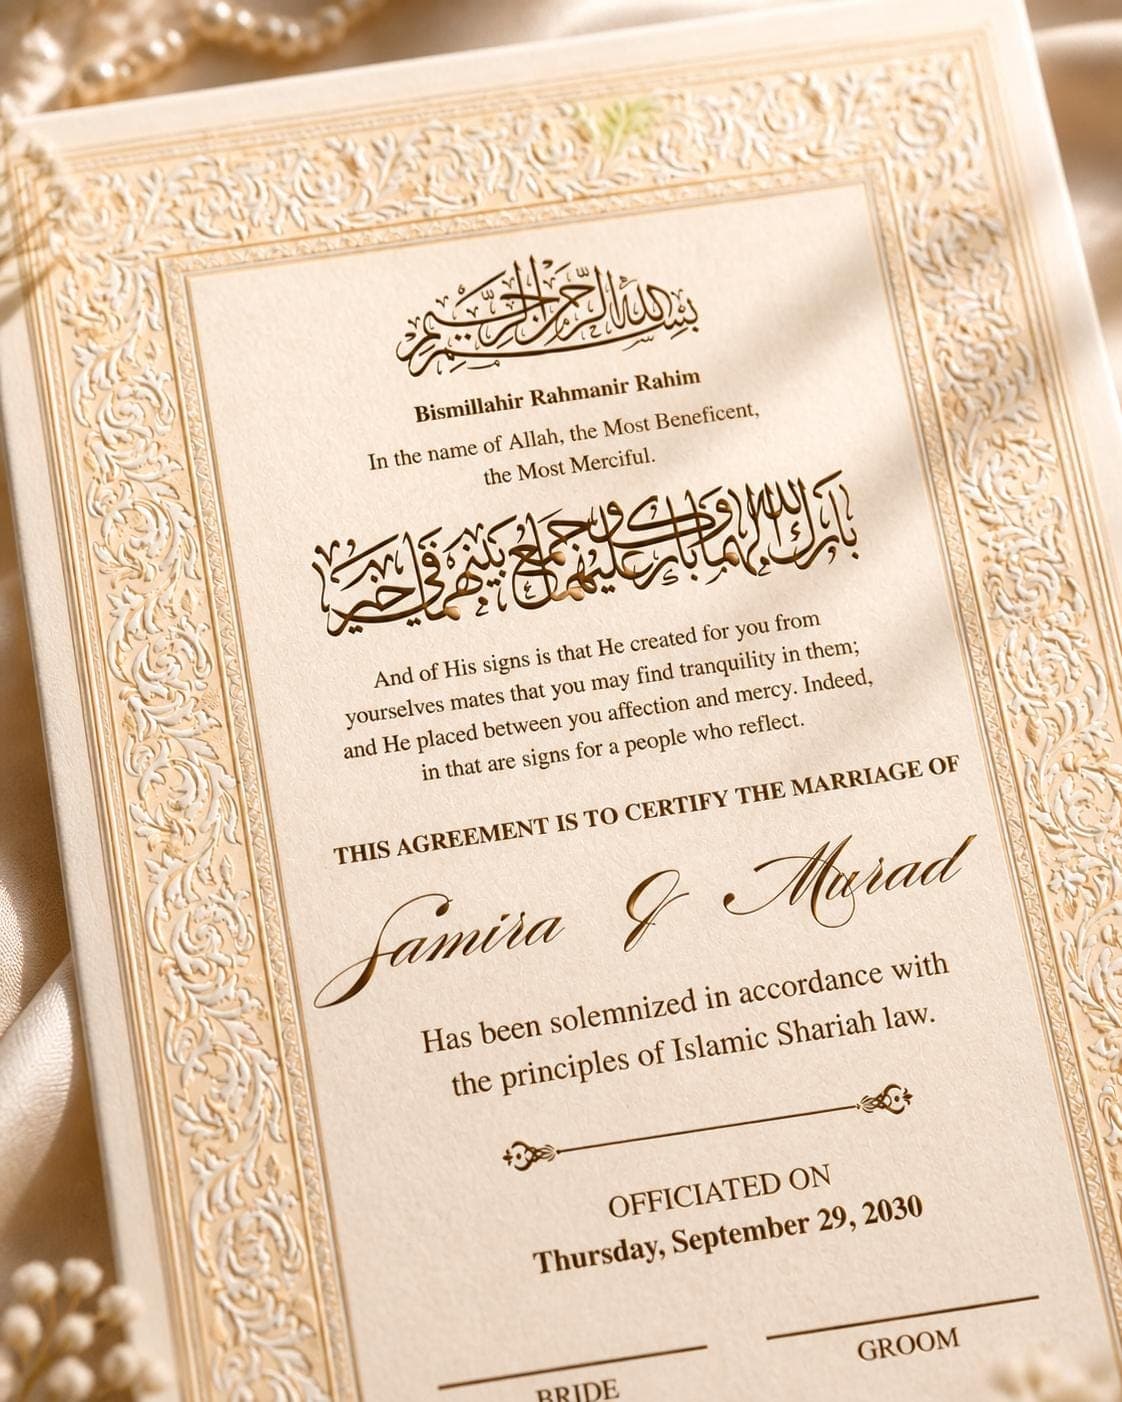 بسم الله الرحمن الرحيم
Bismillahir Rahmanir Rahim
In the name of Allah, the Most Beneficent,
the Most Merciful.
بارك الله لهما وبارك عليهما وجمع بينهما في خير
And of His signs is that He created for you from
yourselves mates that you may find tranquility in them;
and He placed between you affection and mercy. Indeed,
in that are signs for a people who reflect.
THIS AGREEMENT IS TO CERTIFY THE MARRIAGE OF
Samira & Murad
Has been solemnized in accordance with
the principles of Islamic Shariah law.
OFFICIATED ON
Thursday, September 29, 2030
GROOM
BRIDE